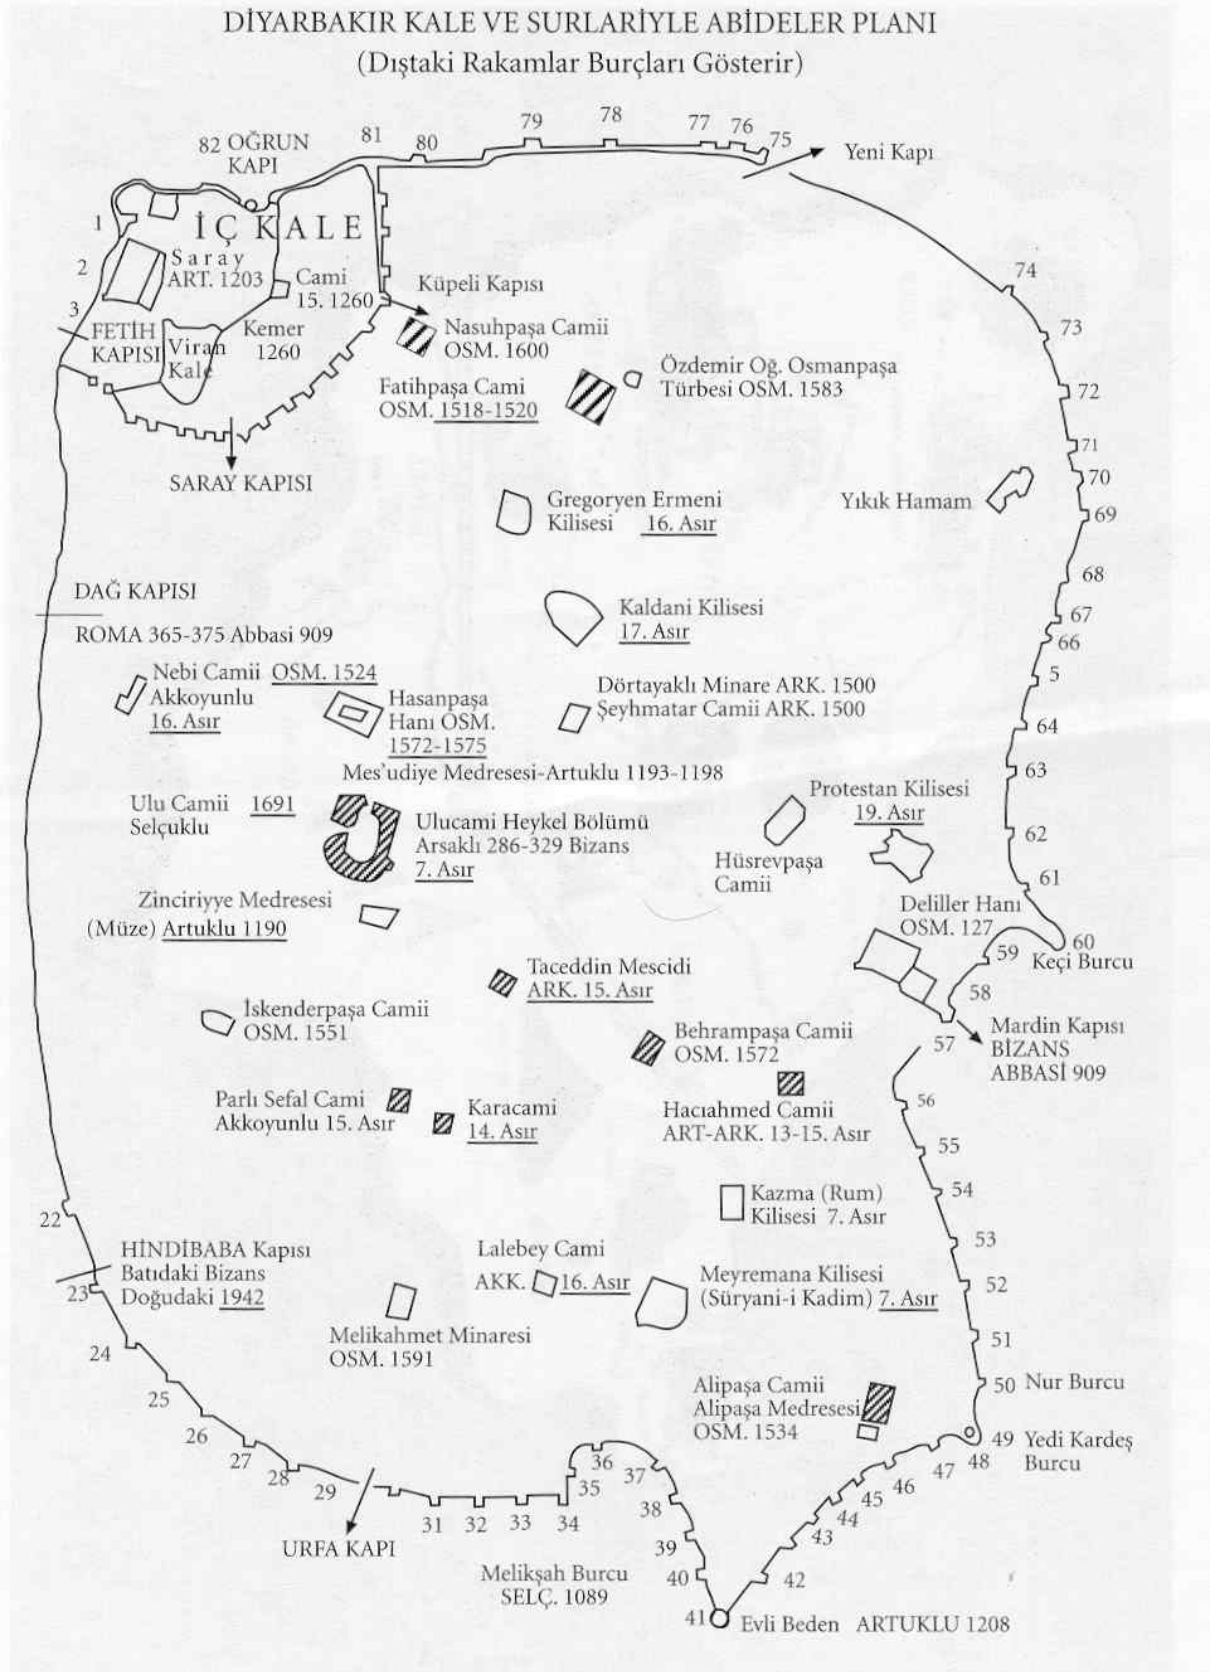 DİYARBAKIR KALE VE SURLARİYLE ABİDELER PLANI
(Dıştaki Rakamlar Burçları Gösterir)
82 OĞRUN
KAPI
81
80
79
78
77
76
75
Yeni Kapı
1
2
3
İÇ KALE
Saray
ART. 1203
Cami
15. 1260
Küpeli Kapısı
FETİH
KAPISI
Viran
Kale
Kemer
1260
Nasuhpaşa Camii
OSM. 1600
Fatihpaşa Cami
OSM. 1518-1520
Özdemir Oğ. Osmanpaşa
Türbesi OSM. 1583
74
73
72
71
70
69
68
67
66
5
64
63
62
61
SARAY KAPISI
Gregoryen Ermeni
Kilisesi 16. Asır
Yıkık Hamam
DAĞ KAPISI
ROMA 365-375 Abbasi 909
Kaldani Kilisesi
17. Asır
Nebi Camii OSM. 1524
Akkoyunlu
16. Asır
Hasanpaşa
Hanı OSM.
1572-1575
Dörtayaklı Minare ARK. 1500
Şeyhmatar Camii ARK. 1500
Mes'udiye Medresesi-Artuklu 1193-1198
Ulu Camii 1691
Selçuklu
Ulucami Heykel Bölümü
Arsaklı 286-329 Bizans
7. Asır
Protestan Kilisesi
19. Asır
Hüsrevpaşa
Camii
Zinciriyye Medresesi
(Müze) Artuklu 1190
Deliller Hanı
OSM. 127
60
Keçi Burcu
59
58
57
Mardin Kapısı
BİZANS
ABBASİ 909
Taceddin Mescidi
ARK. 15. Asır
İskenderpaşa Camii
OSM. 1551
Behrampaşa Camii
OSM. 1572
Parlı Sefal Cami
Akkoyunlu 15. Asır
Karacami
14. Asır
Hacıahmed Camii
ART-ARK. 13-15. Asır
56
55
54
53
52
51
50 Nur Burcu
Kazma (Rum)
Kilisesi 7. Asır
22
23
HİNDİBABA Kapısı
Batıdaki Bizans
Doğudaki 1942
Lalebey Cami
AKK. 16. Asır
Meyremana Kilisesi
(Süryani-i Kadim) 7. Asır
Melikahmet Minaresi
OSM. 1591
24
25
26
27
28
29
Alipaşa Camii
Alipaşa Medresesi
OSM. 1534
49 Yedi Kardeş
Burcu
48
47
46
45
44
43
42
URFA KAPI
31
32
33
34
35
36
37
38
39
40
Melikşah Burcu
SELÇ. 1089
41
Evli Beden ARTUKLU 1208